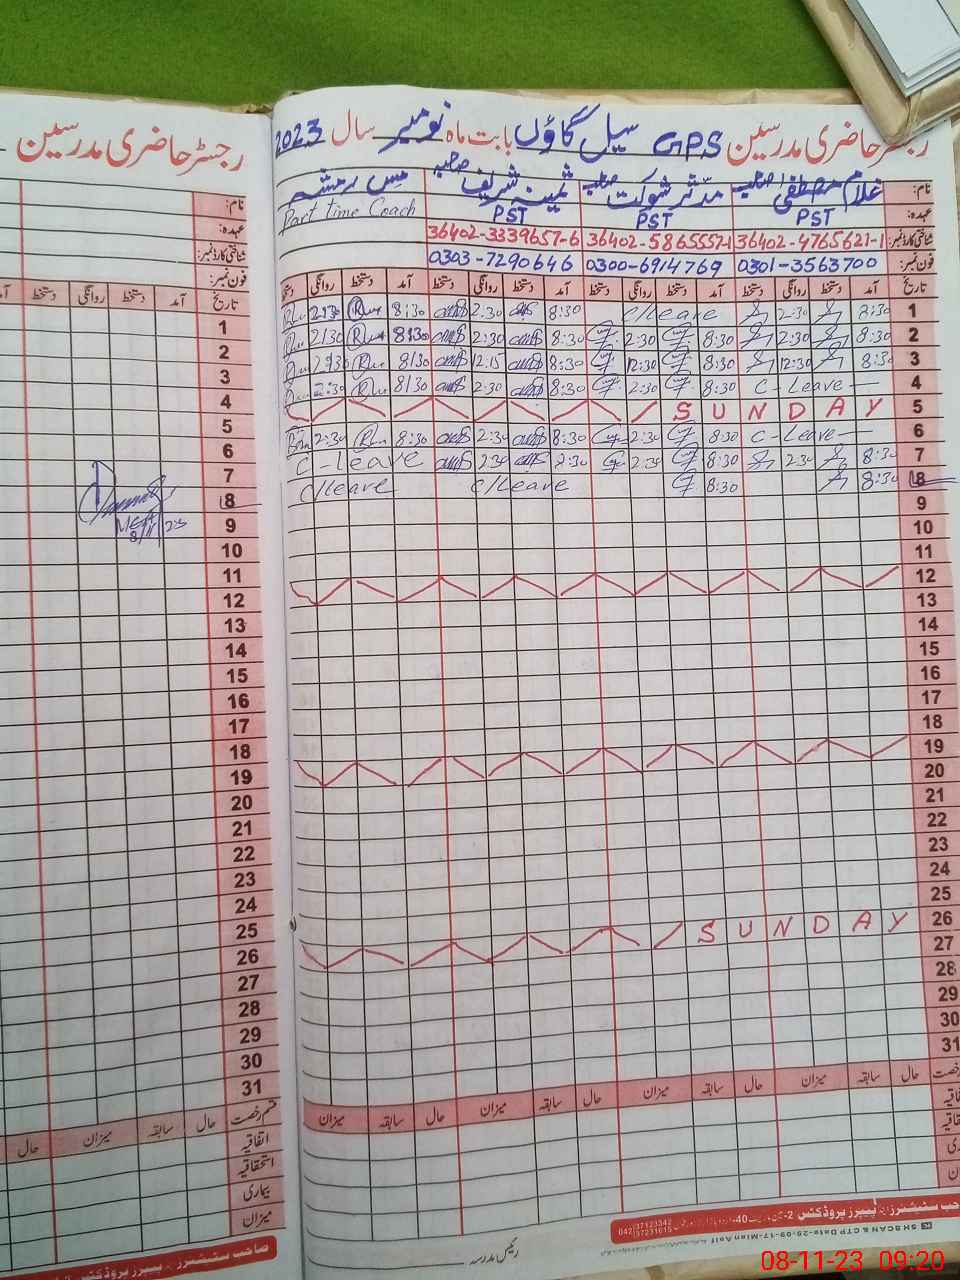 رجسٹر حاضری مدرسین
رجسٹر حاضری مدرسین G.P.S سہیل گاؤں بابت ماہ نومبر سال 2023
نام: غلام مصطفیٰ صاحب مدثر شوکت صاحب ثمینہ شریف صاحبہ مس رمشہ
عہدہ: PST PST PST Part time Coach
شناختی کارڈ نمبر: 36402-4765621-1 36402-5865557-1 36402-3339657-6
فون نمبر: 0301-3563700 0300-6914769 0303-7290646
تاریخ آمد دستخط روانگی دستخط آمد دستخط روانگی دستخط آمد دستخط روانگی دستخط آمد دستخط روانگی دستخط
1 8:30 2:30 C/Leave 8:30 2:30 8:30 2:30
2 8:30 2:30 8:30 2:30 8:30 2:30 8:30 2:30
3 8:30 12:30 8:30 12:30 8:30 12:15 8:30
4 C-Leave 8:30 2:30 8:30 2:30 8:30 2:30
5 SUNDAY
6 C-Leave 8:30 2:30 8:30 2:30 8:30 2:30
7 8:30 2:30 8:30 2:30 2:30 2:30 C-Leave
8 8:30 8:30 C/Leave C/Leave
9
10
11
12
13
14
15
16
17
18
19
20
21
22
23
24
25
26 SUNDAY
27
28
29
30
31
رخصت حال سابقہ میزان حال سابقہ میزان حال سابقہ میزان
رئیس مدرسہ
نام:
عہدہ:
شناختی کارڈ نمبر:
فون نمبر:
تاریخ آمد دستخط روانگی دستخط آمد
1
2
3
4
5
6
7
8
9
10
11
12
13
14
15
16
17
18
19
20
21
22
23
24
25
26
27
28
29
30
31
8/11/23
قسم رخصت حال سابقہ میزان حال
اتفاقیہ
استحقاقیہ
بیماری
میزان
08-11-23 09:20